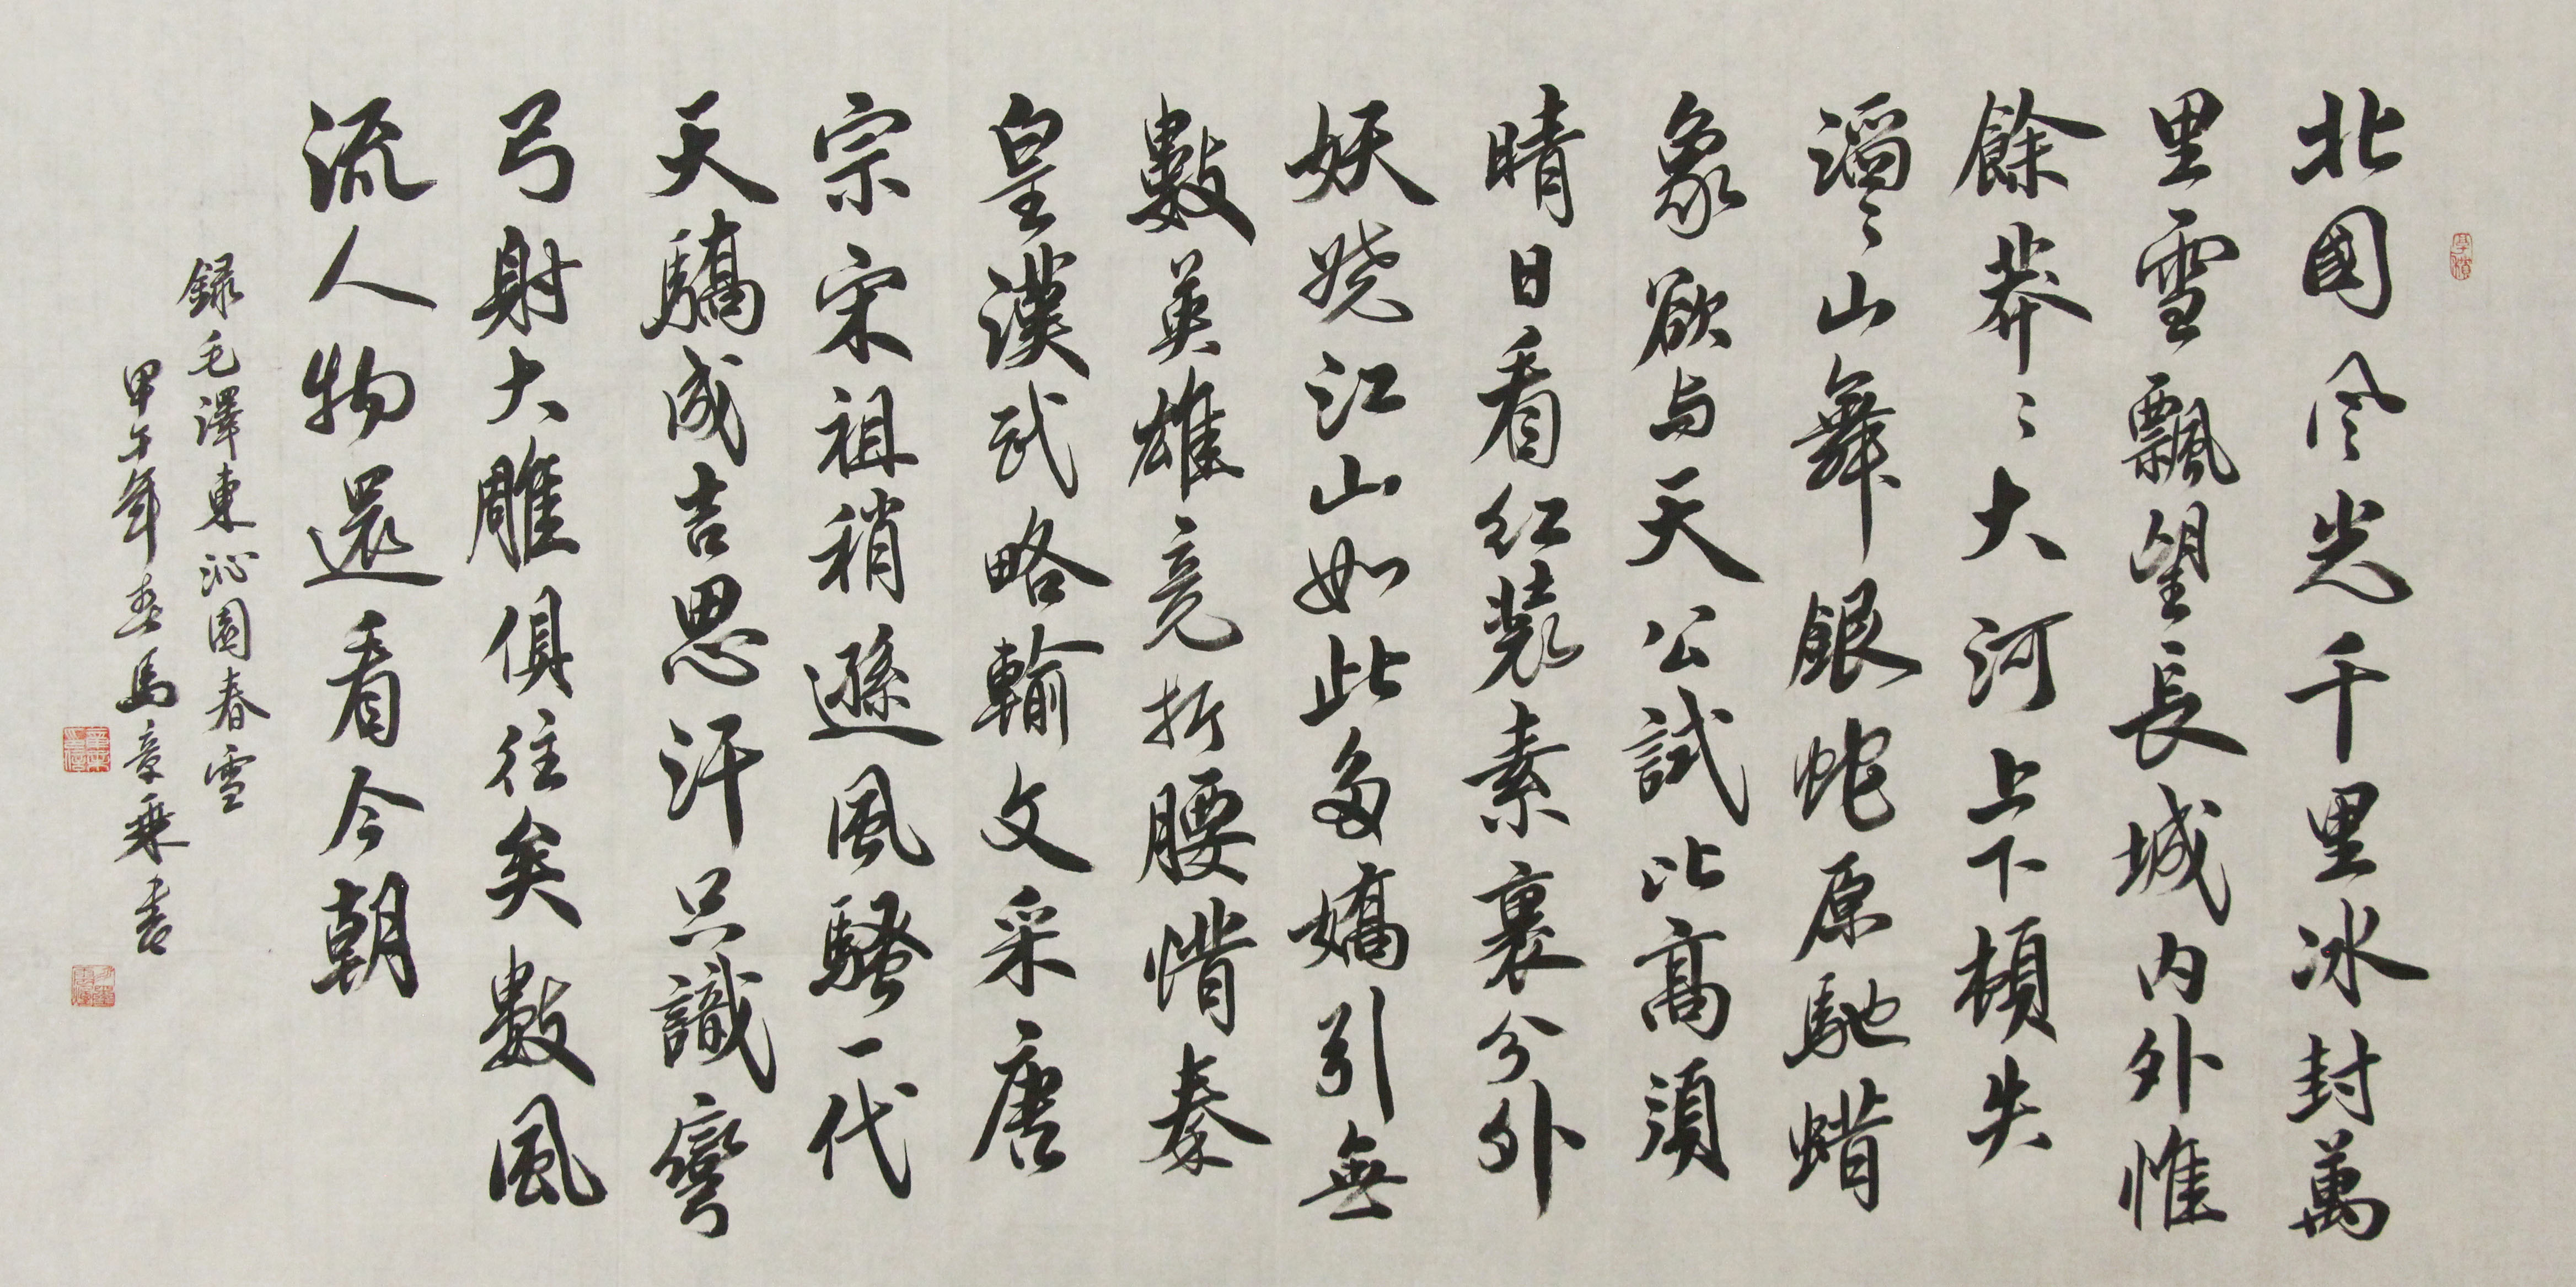 北國风光千里冰封萬
里雪飄望長城内外惟
餘莽〻大河上下頓失
滔〻山舞銀蛇原馳蜡
象欲与天公試比高須
晴日看红裝素裹分外
妖娆江山如此多嬌引無
數英雄竞折腰惜秦
皇漢武略輸文采唐
宗宋祖稍遜風騷一代
天驕成吉思汗只識彎
弓射大雕俱往矣數風
流人物還看今朝
録毛澤東沁園春雪
甲午年春馬章乘書